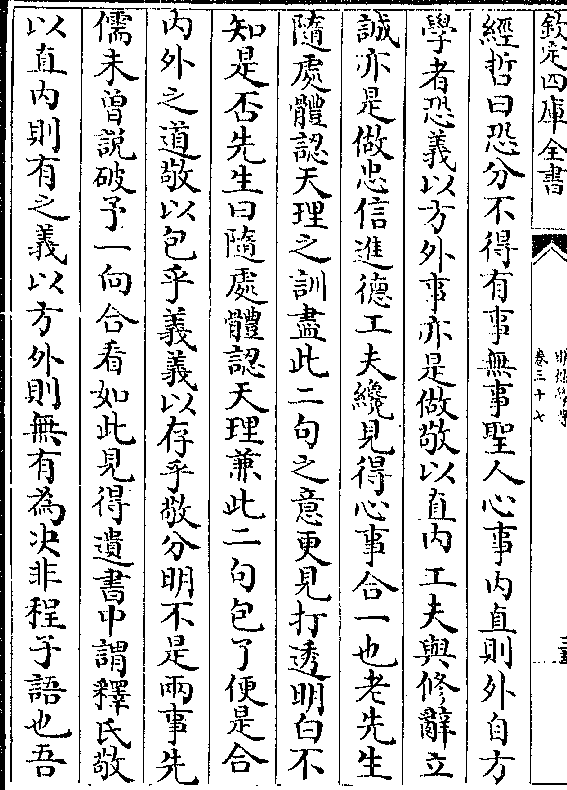 欽定四庫全書
卷三十七
經哲曰恐分不得有事無事聖人心事内直則外自方
學者恐義以方外事亦是做敬以直内工夫與修辭立
誠亦是做忠信進德工夫纔見得心事合一也老先生
隨處體認天理之訓盡此二句之意更見打透明白不
知是否先生曰隨處體認天理兼此二句包了便是合
内外之道敬以包乎義義以存乎敬分明不是兩事先
儒未曾説破予一向合看如此見得遺書中謂釋氏敬
以直内則有之義以方外則無有為决非程子語也吾